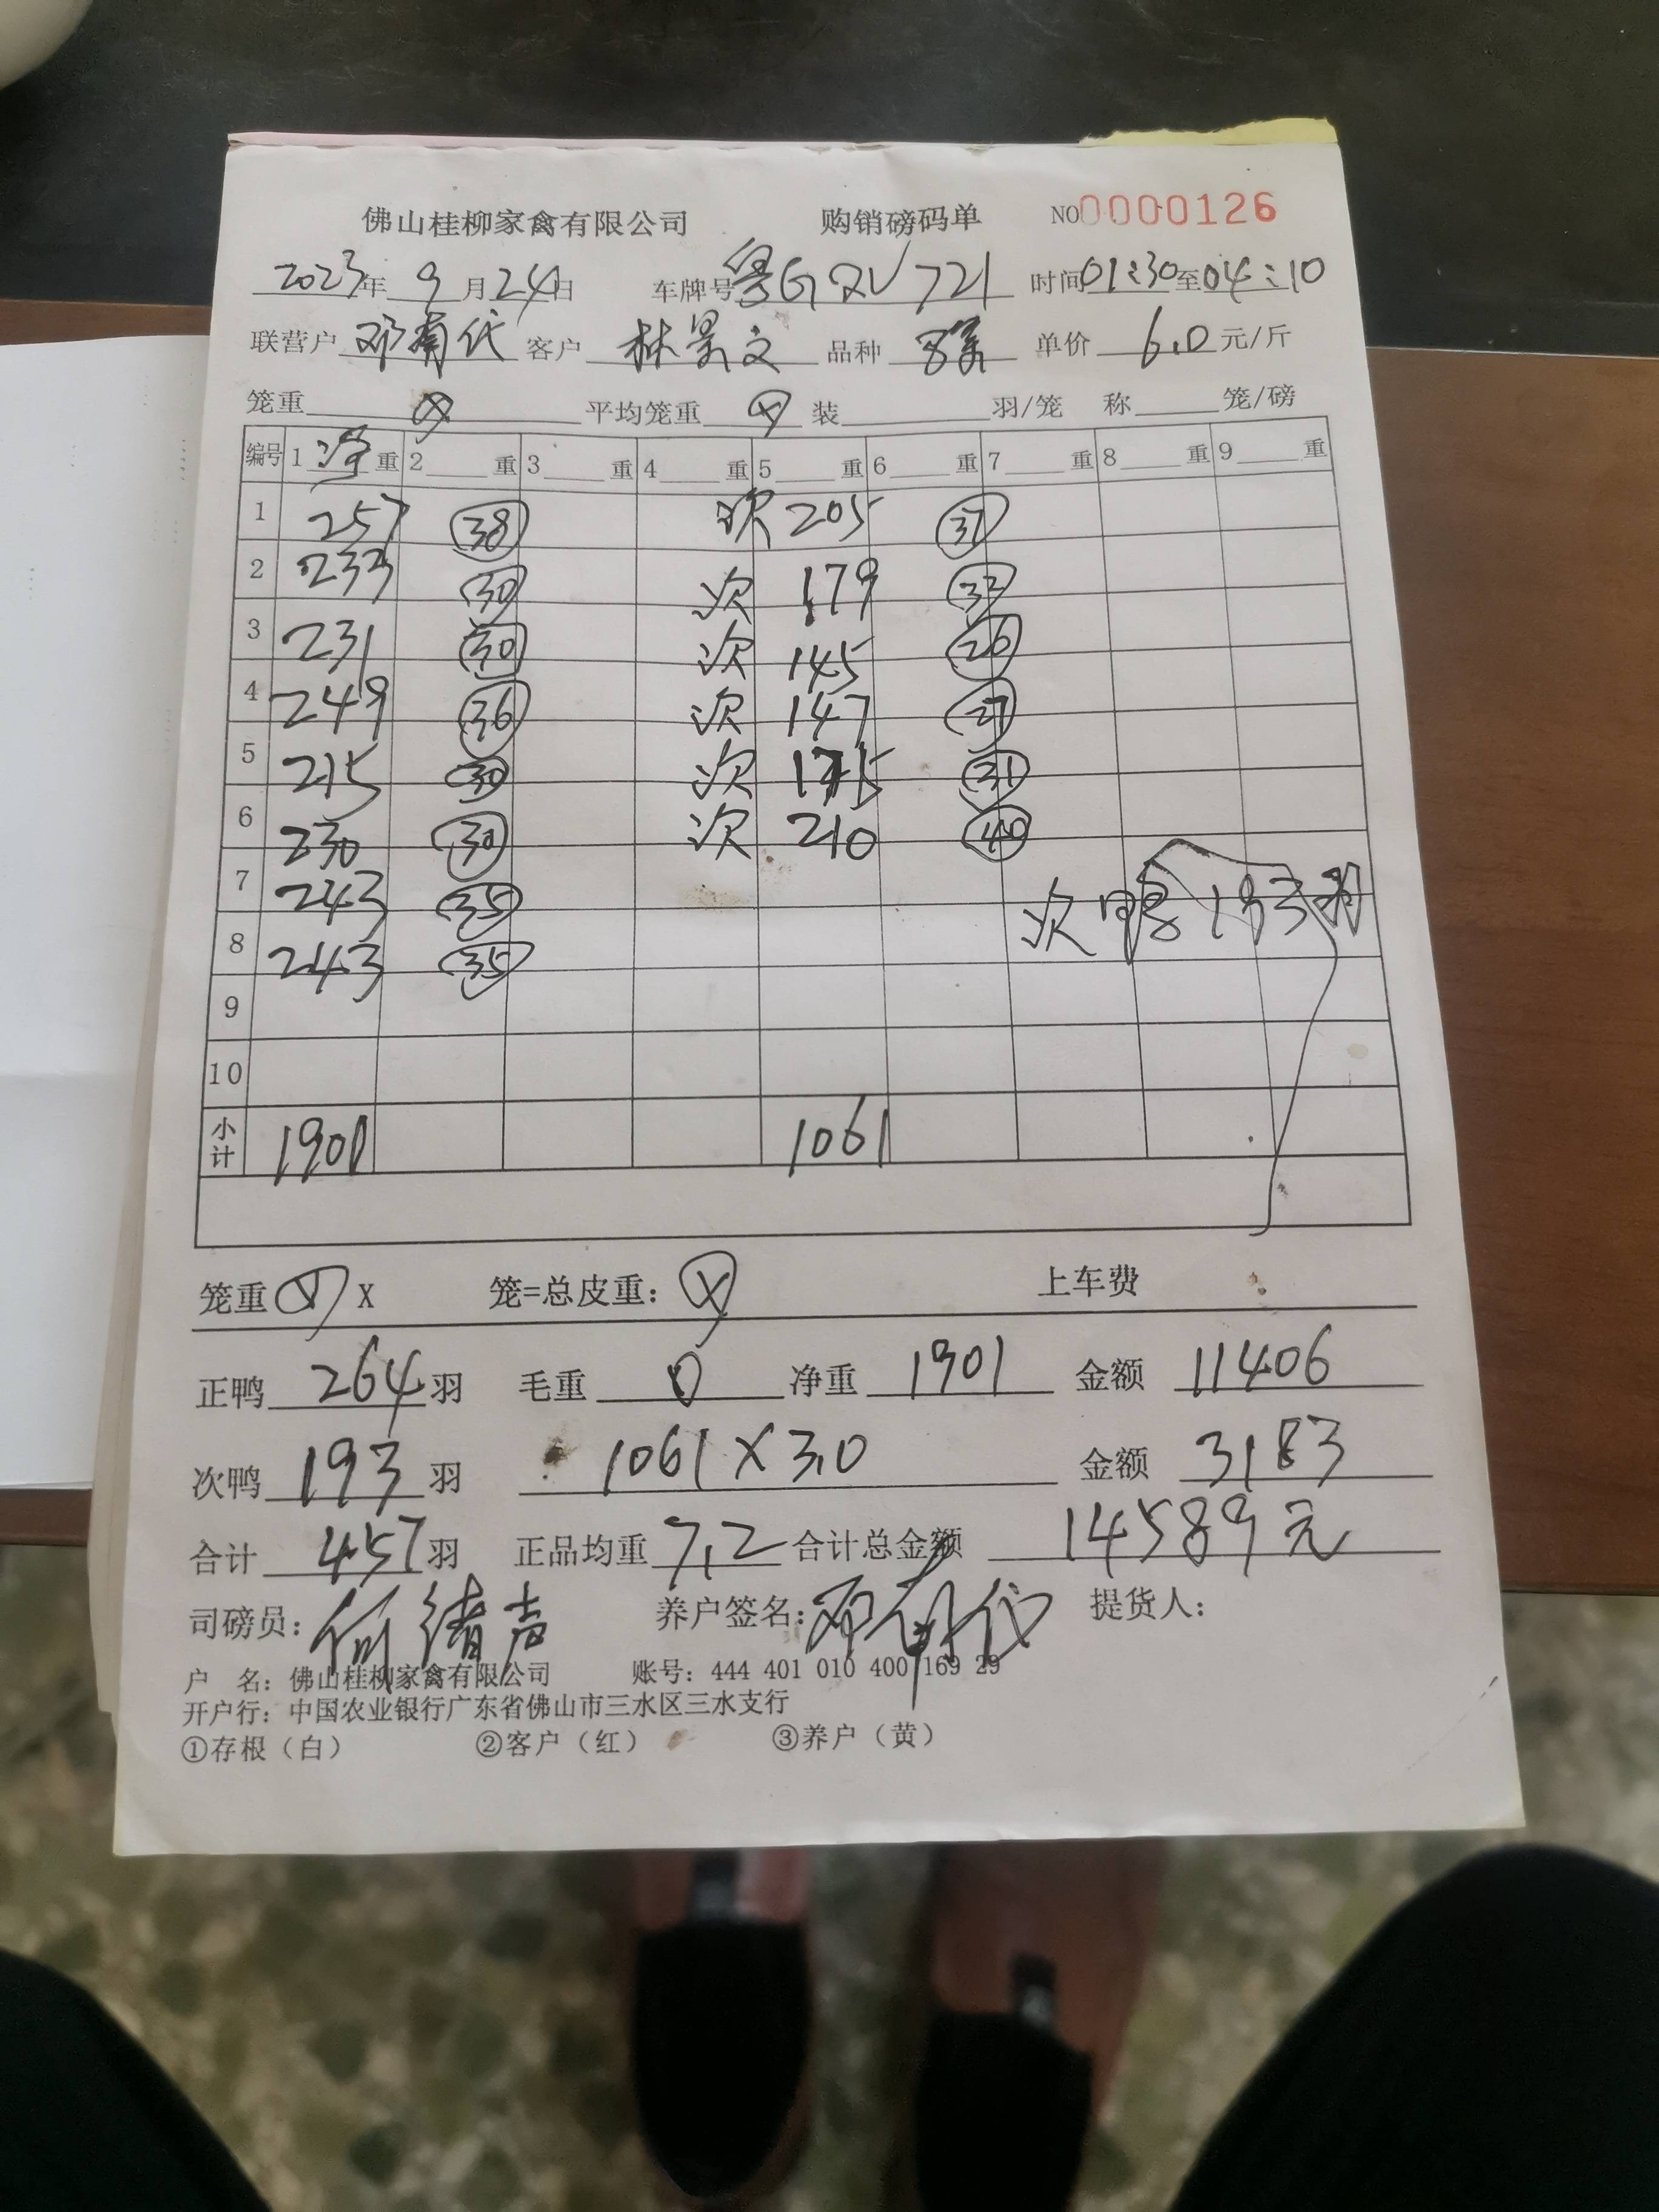 佛山桂柳家禽有限公司 购销磅码单 NO0000126
2023年 9月24日 车牌号粤GQV721 时间01:30至04:10
联营户 邓有代 客户 林景文 品种 单价 6.0元/斤
笼重 ⊗ 平均笼重 ⊗ 装 羽/笼 称 笼/磅
编号 1净重 2 重 3 重 4 重 5 重 6 重 7 重 8 重 9 重
1 257 38 次 205 37
2 233 30 次 179 32
3 231 30 次 145 26
4 249 36 次 147 27
5 215 30 次 175 31
6 230 30 次 210 40
7 243 35 次鸭193羽
8 243 35
9
10
小计 1901 1061
笼重⊗X 笼=总皮重:⊗ 上车费
正鸭 264 羽 毛重 0 净重 1901 金额 11406
次鸭 193 羽 1061×3.0 金额 3183
合计 457羽 正品均重 7.2 合计总金额 14589元
司磅员:何绪声 养户签名:邓有代 提货人:
户 名:佛山桂柳家禽有限公司 账号:444 401 010 400 169 29
开户行:中国农业银行广东省佛山市三水区三水支行
①存根(白) ②客户(红) ③养户(黄)